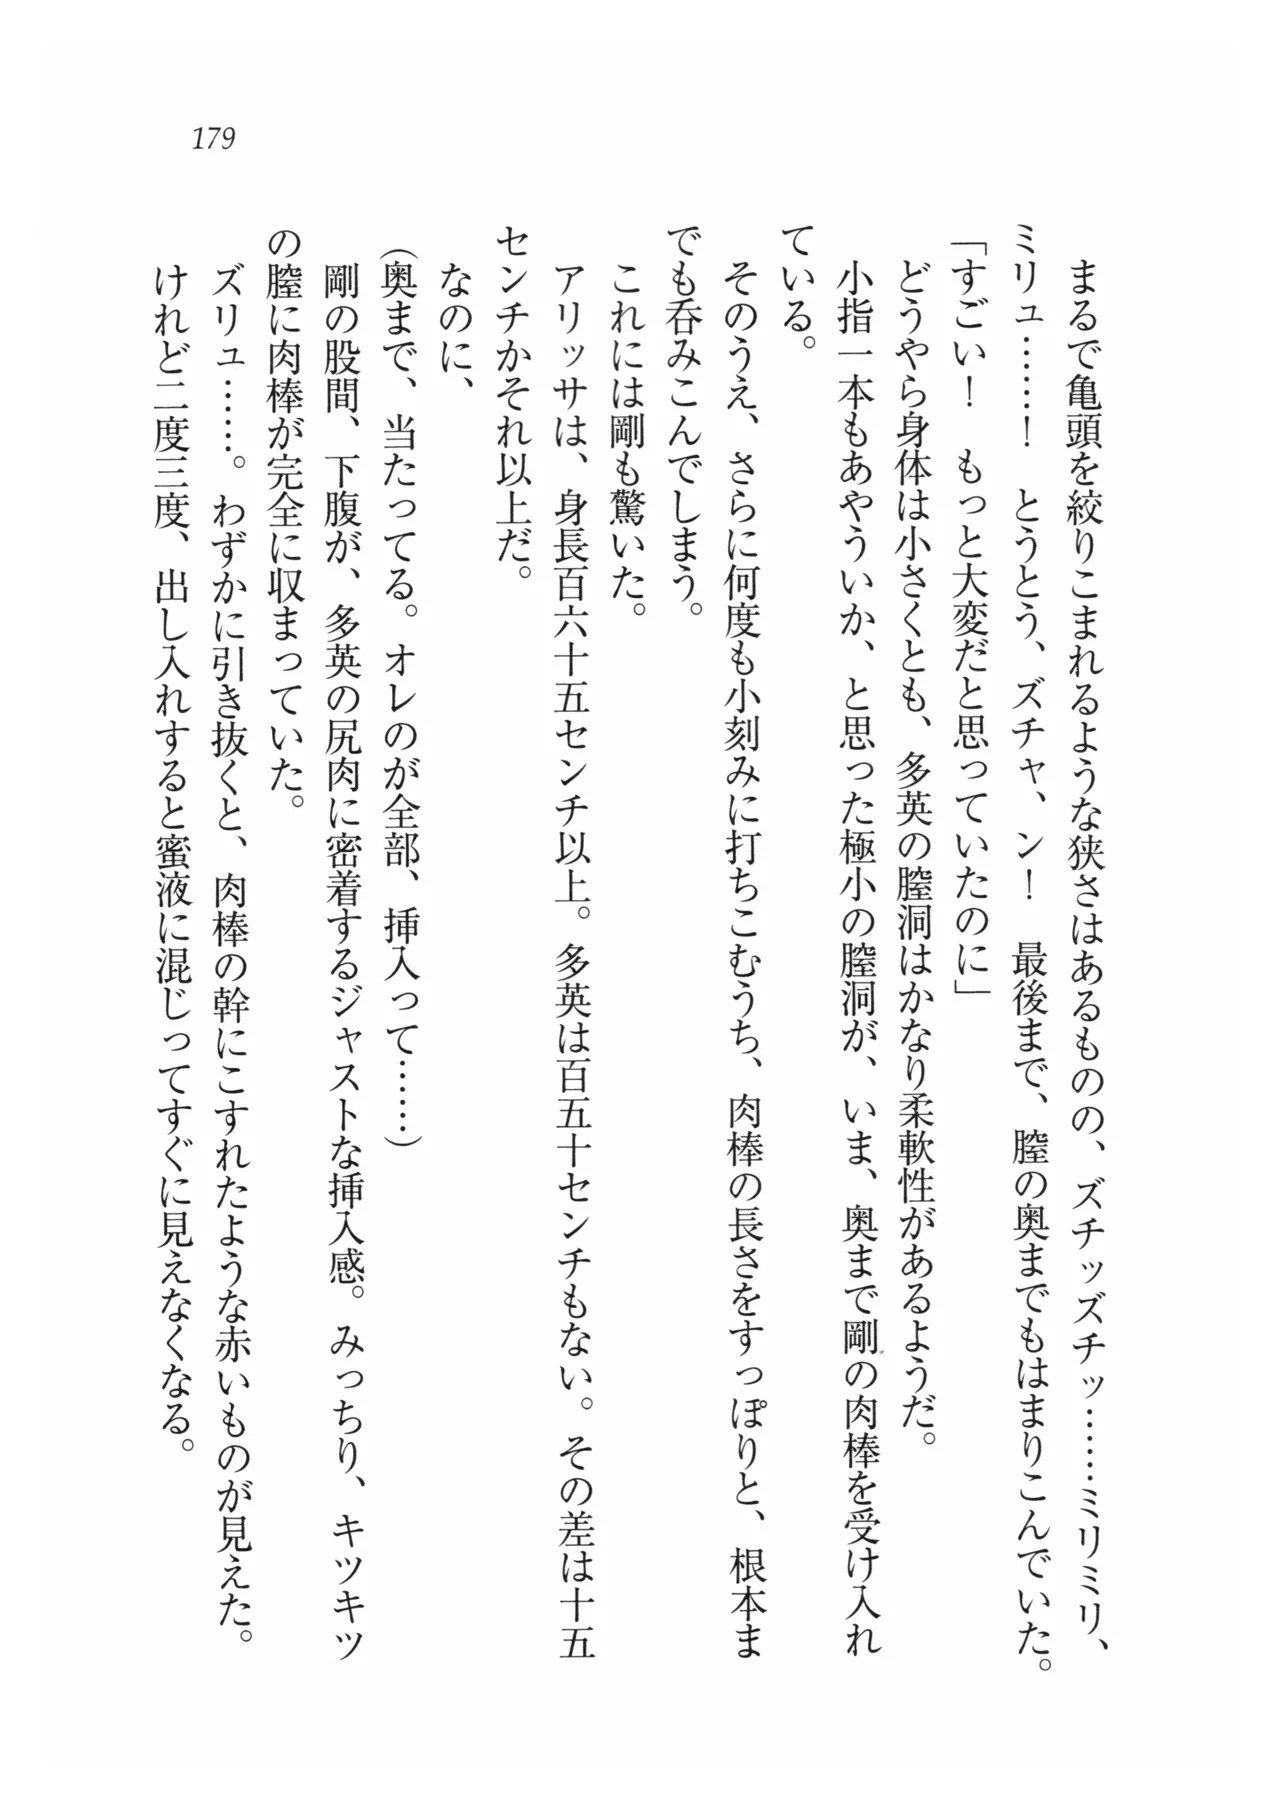 179
まるで亀頭を絞りこまれるような狭さはあるものの、ズチッズチッ……ミリミリ、
ミリュ……！　とうとう、ズチャ、ン！　最後まで、膣の奥までもはまりこんでいた。
「すごい！　もっと大変だと思っていたのに」
どうやら身体は小さくとも、多英の膣洞はかなり柔軟性があるようだ。
小指一本もあやういか、と思った極小の膣洞が、いま、奥まで剛の肉棒を受け入れ
ている。
そのうえ、さらに何度も小刻みに打ちこむうち、肉棒の長さをすっぽりと、根本ま
でも呑みこんでしまう。
これには剛も驚いた。
アリッサは、身長百六十五センチ以上。多英は百五十センチもない。その差は十五
センチかそれ以上だ。
なのに、
（奥まで、当たってる。オレのが全部、挿入って……）
剛の股間、下腹が、多英の尻肉に密着するジャストな挿入感。みっちり、キツキツ
の膣に肉棒が完全に収まっていた。
ズリュ……。わずかに引き抜くと、肉棒の幹にこすれたような赤いものが見えた。
けれど二度三度、出し入れすると蜜液に混じってすぐに見えなくなる。